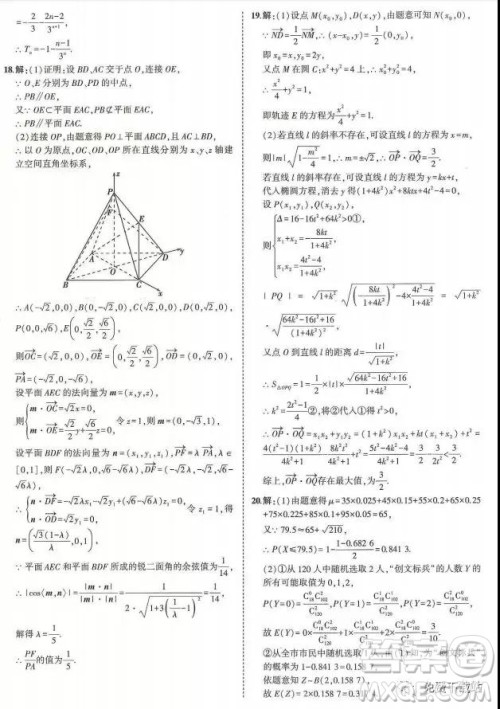 =-2/3-(2n-2)/3ⁿ⁺¹,
∴Tₙ=1-(n-1)/3ⁿ.
18.解:(1)证明:设 BD、AC 交于点 O,连接 OE,
∵O、E 分别为 BD、PD 的中点,
∴PB∥OE,
又∵OE⊂平面 EAC,PB⊄平面 EAC,
∴PB∥平面 EAC.
(2)连接 OP,由题意得 PO⊥平面 ABCD,且 AC⊥BD,
∴以 O 为原点,OC、OD、OP 所在直线分别为 x、y、z 轴建
立空间直角坐标系,
z
P
F
E
A
D
y
O
B
C
x
∴A(-√2,0,0),B(0,-√2,0),C(√2,0,0),D(0,√2,0),
P(0,0,√6),E(0,√2/2,√6/2),
则OC=(√2,0,0),OE=(0,√2/2,√6/2),OD=(0,√2,0),
PA=(-√2,0,-√6),
设平面 AEC 的法向量为 m=(x,y,z),
则{m·OC=√2x=0, m·OE=√2/2y+√6/2z=0, 令 z=1,则 m=(0,-√3,1),
设平面 BDF 的法向量为 n=(x₁,y₁,z₁),PF=λPA,λ∈
[0,1],则 F(-√2λ,0,√6-√6λ),DF=(-√2λ,-√2,√6-√6λ),
∴{n·DF=-√2λx₁-√2y₁+(√6-√6λ)z₁=0, n·OD=√2y₁=0, 令 z₁=1,得
n=(√3(1-λ)/λ,0,1),
∵平面 AEC 和平面 BDF 所成的锐二面角的余弦值为1/14,
∴|cos⟨m,n⟩|=|m·n|/(|m|·|n|)=1/(2·√(1+3((1-λ)/λ)²))=1/14,
解得 λ=1/5.
∴PF/PA的值为1/5.
19.解:(1)设点 M(x₀,y₀),D(x,y),由题意可知 N(x₀,0),
∵ND=1/2NM,∴(x-x₀,y)=1/2(0,y₀),
即 x₀=x,y₀=2y,
又点 M 在圆 C:x²+y²=4 上,∴x²/4+y²=1,
即轨迹 E 的方程为x²/4+y²=1.
(2)若直线 l 的斜率不存在,可设直线 l 的方程为 x=m,
则|m|√(1-m²/4)=1,∴m=±√2,∴OP·OQ=3/2.
若直线 l 的斜率存在,可设直线 l 的方程为 y=kx+t,
代入椭圆方程,消去 y 得(1+4k²)x²+8ktx+4t²-4=0,
设 P(x₁,y₁),Q(x₂,y₂),
则{Δ=16-16t²+64k²>0①, x₁+x₂=-8kt/(1+4k²), x₁x₂=(4t²-4)/(1+4k²),
|PQ|=√(1+k²)√((8kt/(1+4k²))²-4×(4t²-4)/(1+4k²))=√(1+k²)
·√(64k²-16t²+16)/(1+4k²),
又点 O 到直线 l 的距离 d=|t|/√(1+k²),
∴S△OPQ=1/2×|t|×√(64k²-16t²+16)/(1+4k²)=1,
∴k²=(2t²-1)/4②,将②代入①得 t²>0,
∴OP·OQ=x₁x₂+y₁y₂=(1+k²)x₁x₂+kt(x₁+x₂)+t²=
综上,OP·OQ存在最大值,为3/2.
20.解:(1)由题意得 μ=35×0.025+45×0.15+55×0.2+65×0.25
+75×0.225+85×0.1+95×0.05=65.
又∵79.5≈65+√210,
∴P(X≤79.5)=1-(1-0.682 6)/2=0.841 3.
(2)①从 120 人中随机选取 2 人,“创文标兵”的人数 Y 的
所有可能取值为 0,1,2,
②从全市市民中随机选取 1 人
的概率为 1-0.841 3=0.158 7
依题意知 Z~B(2,0.158 7),
故 E(Z)=2×0.158 7=0.3